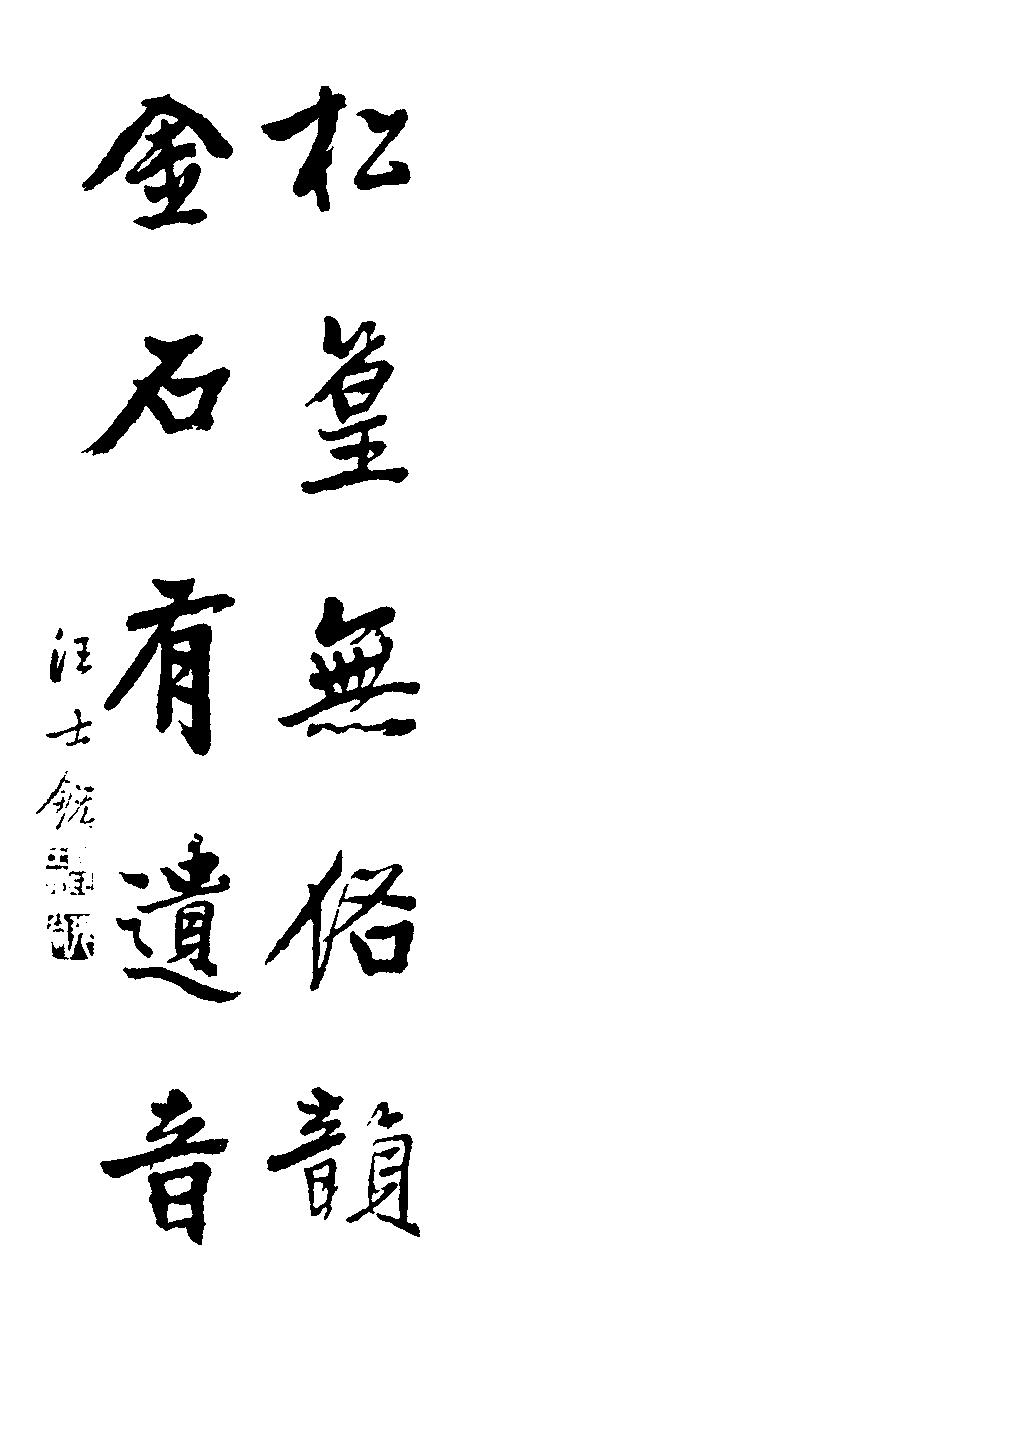 松篁無俗韻
金石有遺音
汪士鋐